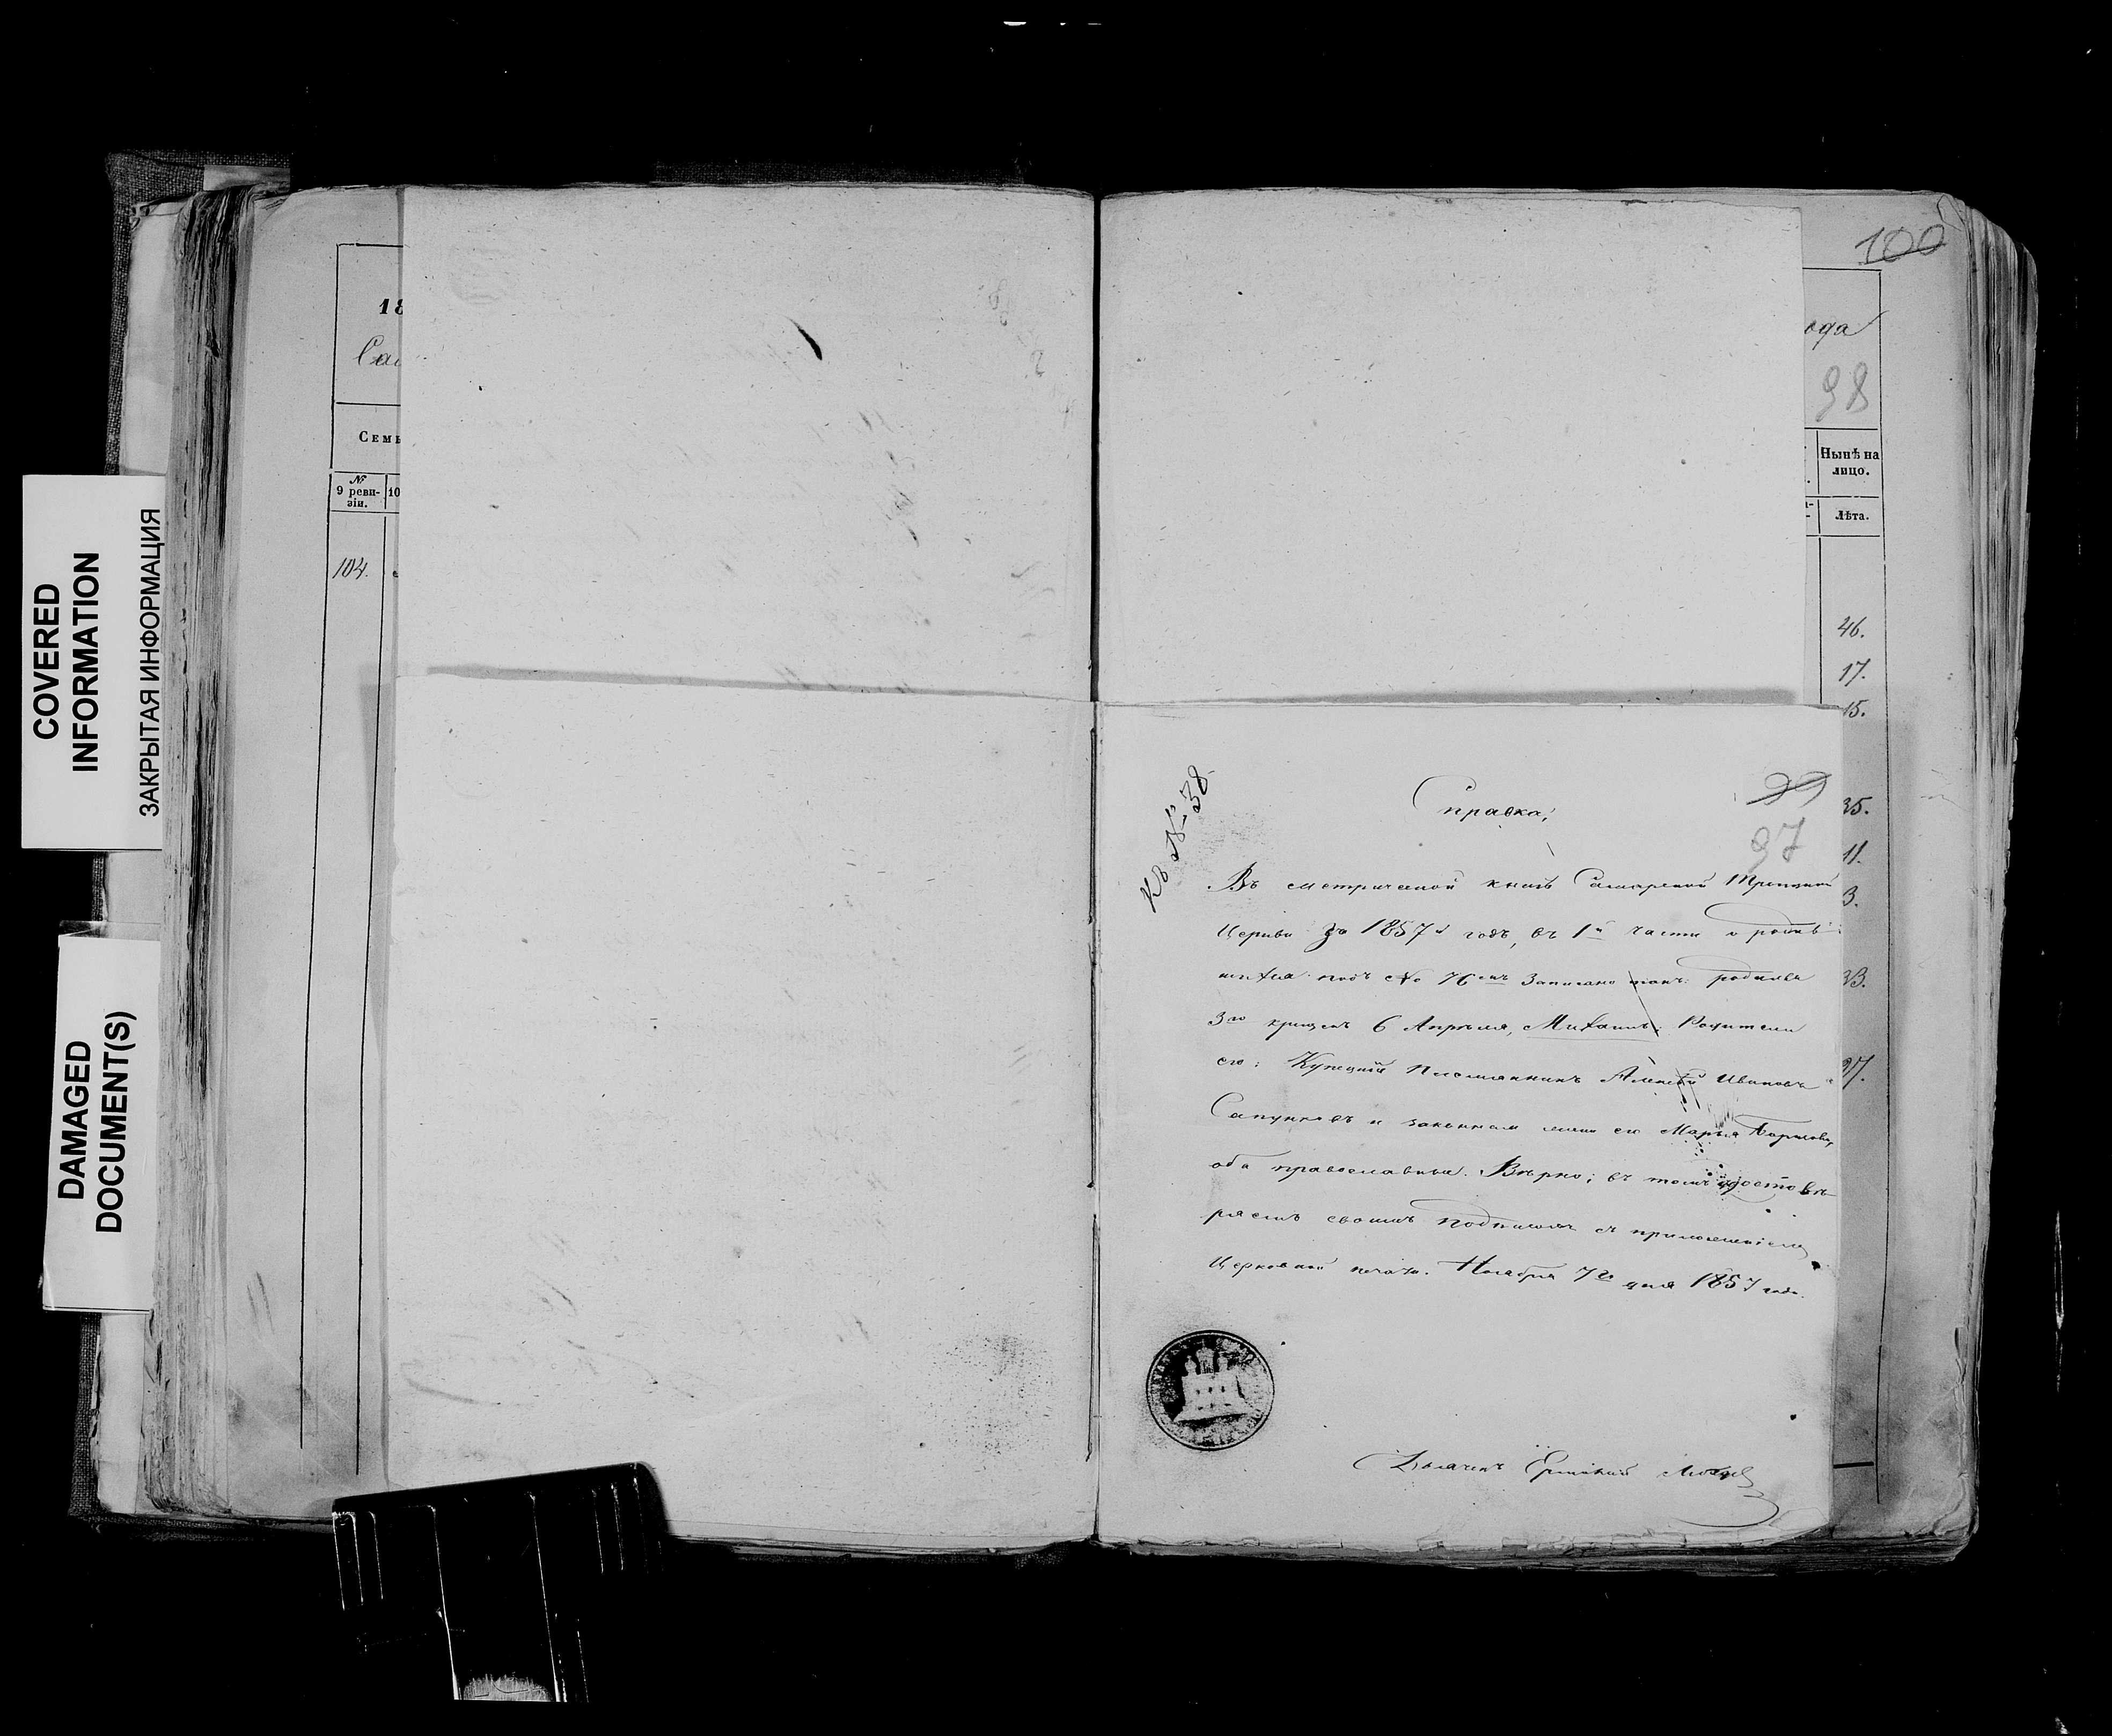 COVERED
INFORMATION
ЗАКРЫТАЯ ИНФОРМАЦИЯ
DAMAGED
DOCUMENT(S)
18
Сам
Семь
№
9 реви-
зіи.
10
104.
100
ода
98
Нынѣ на
лицо.
Лѣта.
46.
17.
15.
35.
11.
3.
33.
37.
Къ № 38.
Справка,
99
97
Въ метрической книгѣ Самарской Троицкой
Церкви за 1857й годъ, въ 1й части о родив
шихся подъ № 76мъ записано такъ: родился
3го крещенъ 6 Апрѣля, Михаилъ, Родители
его: Купецкій Племянникъ Алексѣй Ивановъ
Сапунковъ и законная жена его Марья
оба православные. Вѣрно; въ томъ удостовѣ-
ряемъ своимъ подписомъ съ приложеніемъ
Церковной печати. Ноября 7го дня 1857 года.